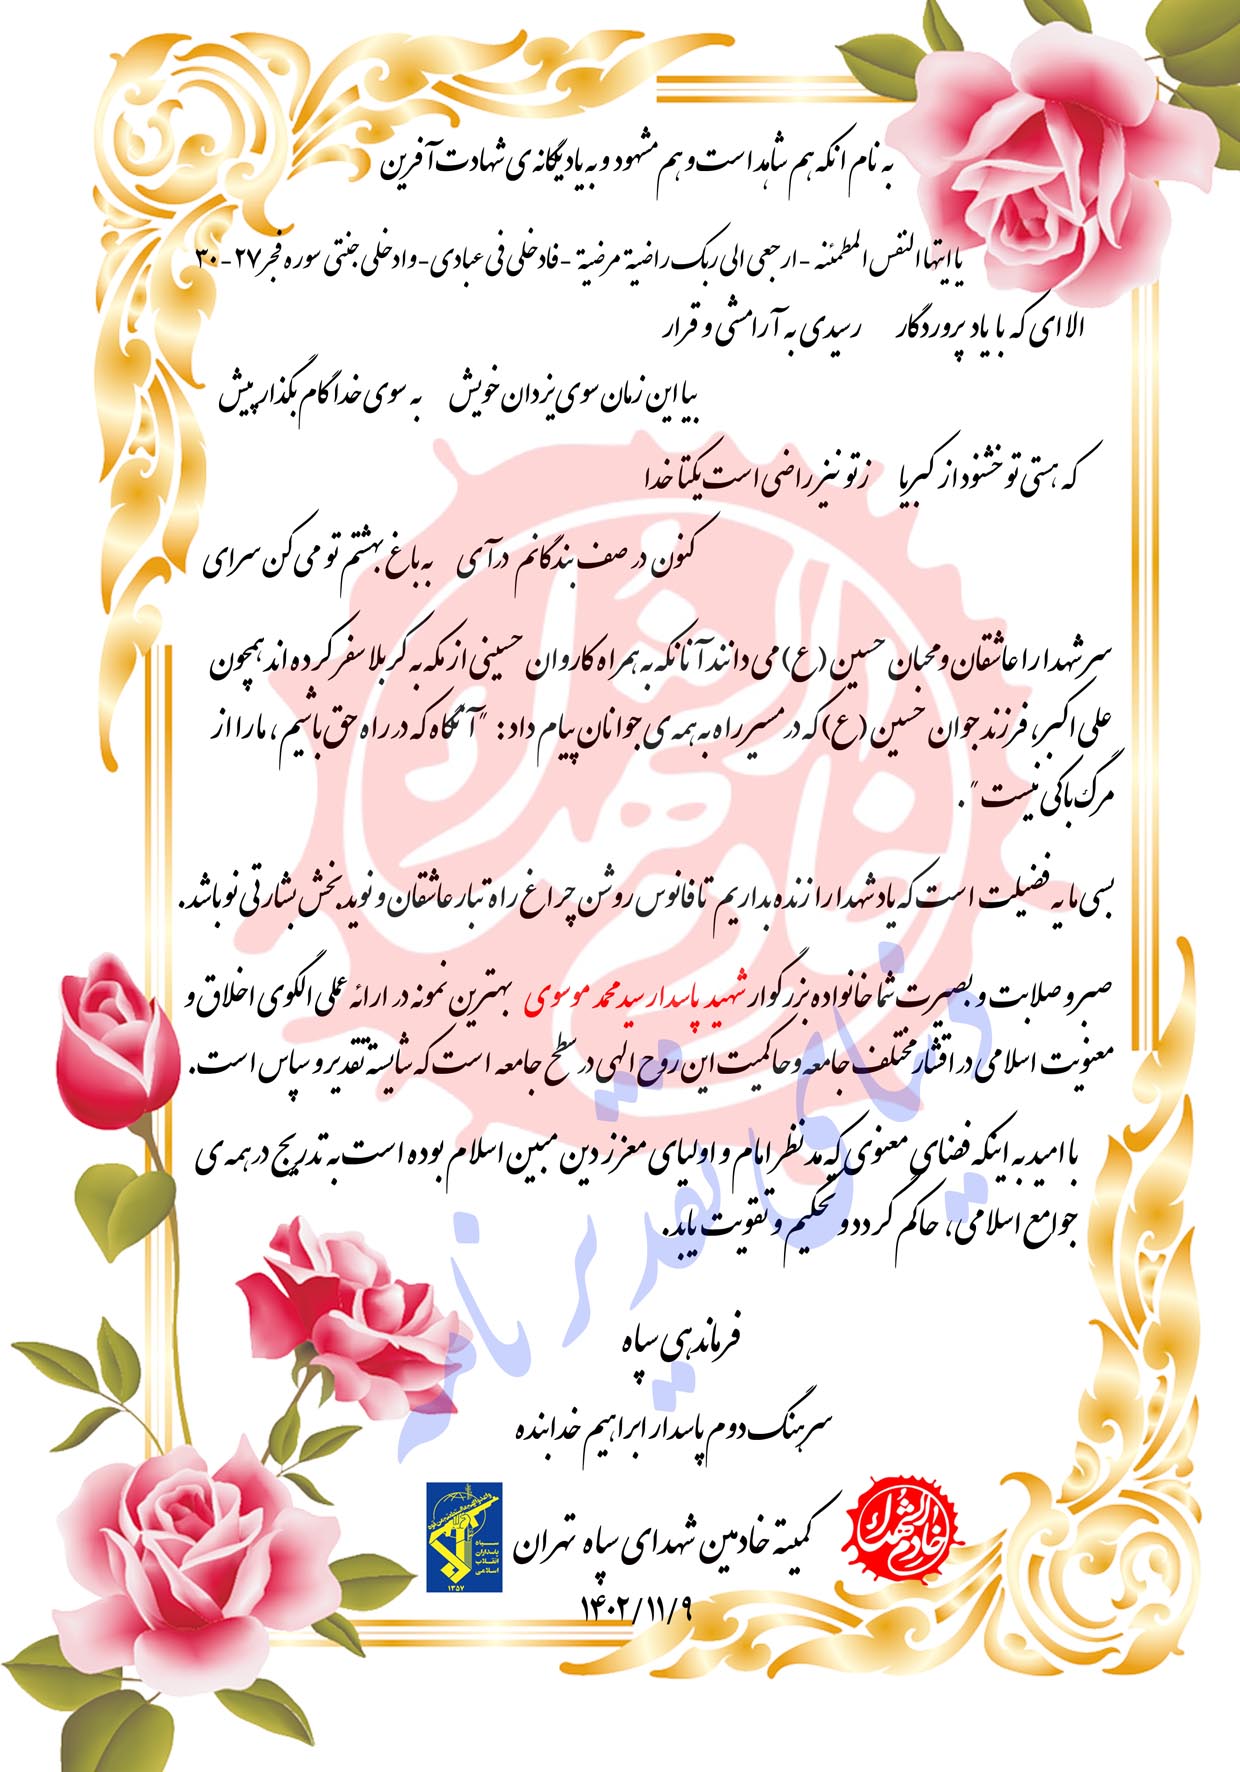 به نام انکه هم شاهد است و هم مشهود و به یاد یگانه ی شهادت آفرین
یا ایتها النفس المطمئنه - ارجعی الی ربک راضیة مرضیة - فادخلی فی عبادی - وادخلی جنتی سوره فجر ۲۷-۳۰
الا ای که با یاد پروردگار رسیدی به آرامشی و قرار
بیا این زمان سوی یزدان خویش به سوی خدا گام بگذار پیش
که هستی تو خشنود از کبریا ز تو نیز راضی است یکتا خدا
کنون در صف بندگانم درآی به باغ بهشتم تو می کن سرای
سر شهدا را عاشقان و محبان حسین (ع) می دانند آنانکه به همراه کاروان حسینی از مکه به کربلا سفر کرده اند همچون
علی اکبر، فرزند جوان حسین (ع) که در مسیر راه به همه ی جوانان پیام داد : "آنگاه که در راه حق باشیم ، ما را از
مرگ باکی نیست" .
بسی مایه فضیلت است که یاد شهدا را زنده بداریم تا فانوس روشن چراغ راه تبار عاشقان و نوید بخش بشارتی نو باشد.
صبر و صلابت و بصیرت شما خانواده بزرگوار شهید پاسدار سید محمد موسوی بهترین نمونه در ارائه عملی الگوی اخلاق و
معنویت اسلامی در اقشار مختلف جامعه و حاکمیت این روح الهی در سطح جامعه است که شایسته تقدیر و سپاس است.
با امید به اینکه فضای معنوی که مد نظر امام و اولیای معزز دین مبین اسلام بوده است به تدریج در همه ی
جوامع اسلامی، حاکم گردد و تحکیم و تقویت یابد.
فرماندهی سپاه
سرهنگ دوم پاسدار ابراهیم خدابنده
خادم الشهداء
کمیته خادمین شهدای سپاه تهران
سپاه
پاسداران
انقلاب
اسلامی
۱۳۵۷
۱۴۰۲/۱۱/۹